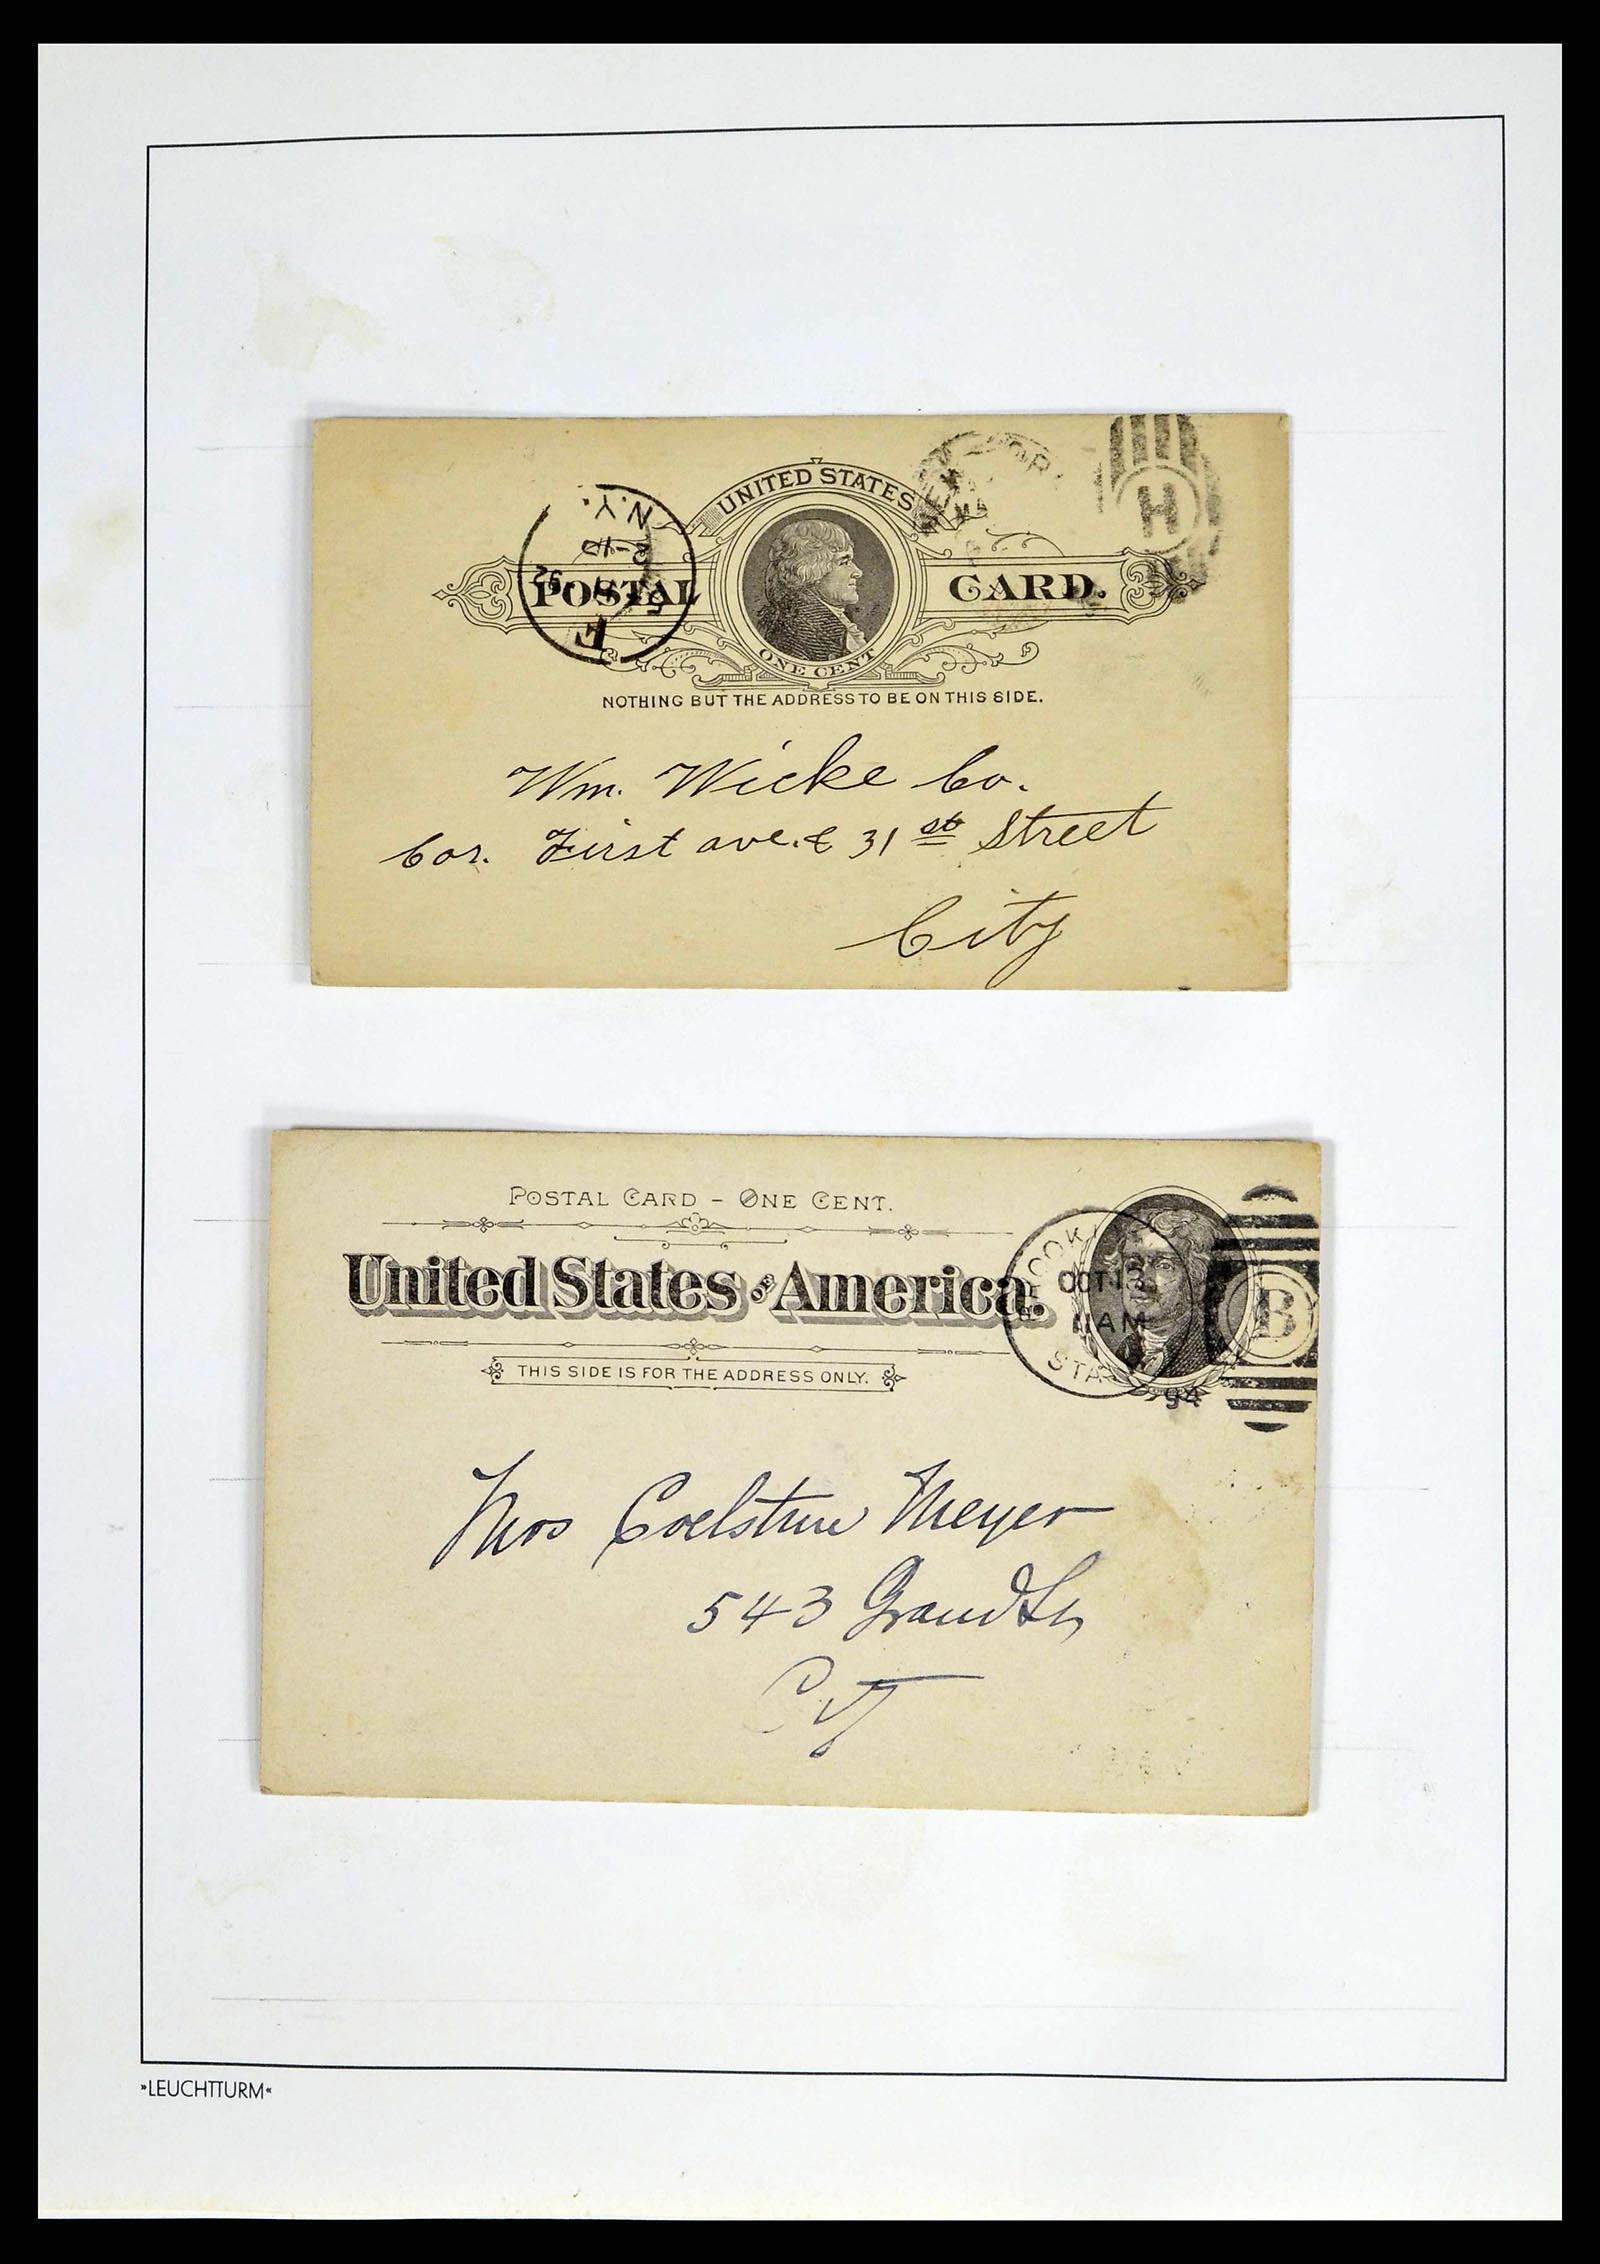 UNITED STATES
POSTAL CARD.
ONE CENT
N.Y.
92
E
H
NOTHING BUT THE ADDRESS TO BE ON THIS SIDE.
Wm. Wicke Co.
Cor. First ave. & 31st Street
City
POSTAL CARD - ONE CENT.
United States of America.
THIS SIDE IS FOR THE ADDRESS ONLY.
OCT 13
11 AM
94
B
Mrs Meyer
543 Grand St
City
»LEUCHTTURM«